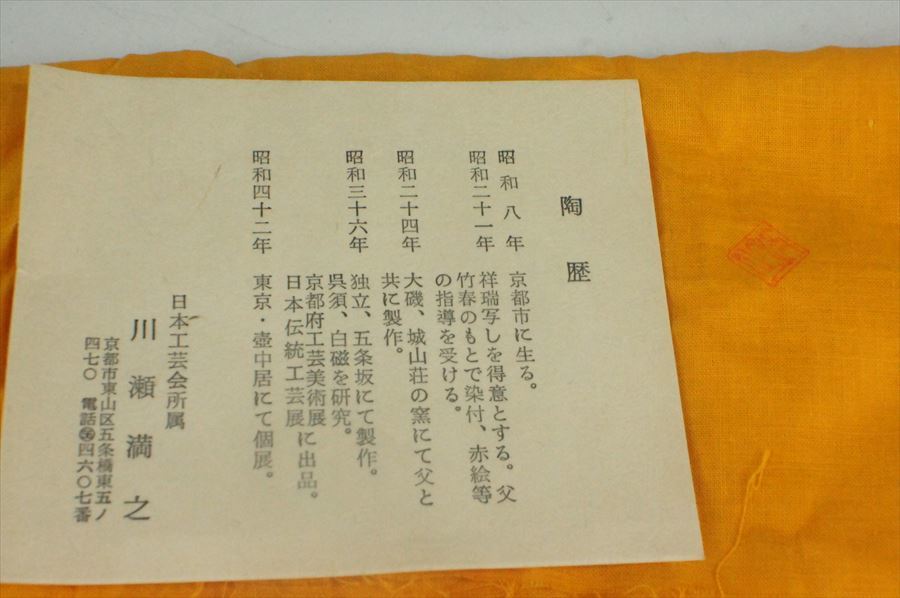 陶歴
昭和八年 京都市に生る。
昭和二十一年 祥瑞写しを得意とする。父
竹春のもとで染付、赤絵等
の指導を受ける。
昭和二十四年 大磯、城山荘の窯にて父と
共に製作。
昭和三十六年 独立、五条坂にて製作。
呉須、白磁を研究。
京都府工芸美術展に出品。
日本伝統工芸展に出品。
昭和四十二年 東京・壺中居にて個展。
日本工芸会所属
川瀬満之
京都市東山区五条橋東五ノ
四七〇 電話 四六〇七番